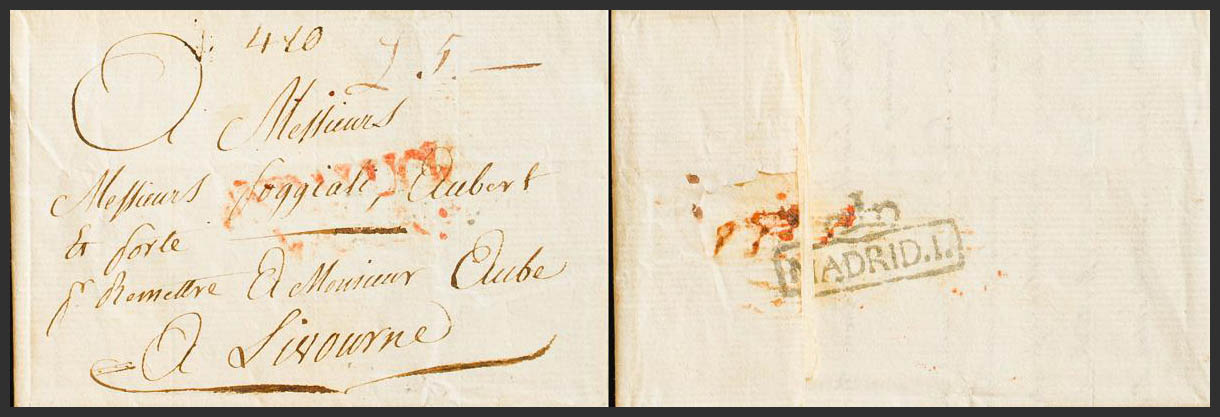 420
A Messieurs
Messieurs foggiali, Aubert
Et forte
pr Remettre A Monsieur Aube
A Livourne
MADRID.I.